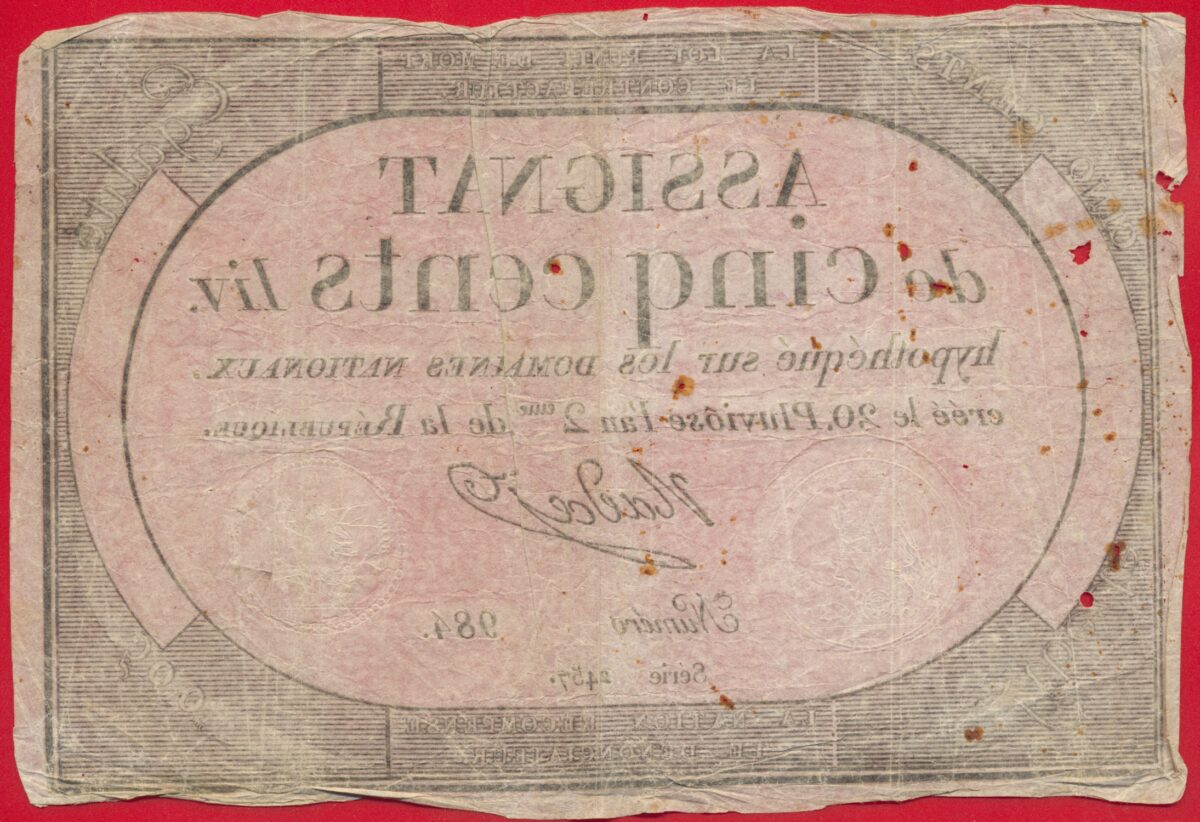 LA LOI PUNIT DE MORT
LE CONTREFACTEUR.
ASSIGNAT
de cinq cents liv.
hypothéqué sur les DOMAINES NATIONAUX.
créé le 20. Pluviôse l'an 2.eme de la RÉPUBLIQUE.
Numéro 984.
Série 2457.
LA NATION RÉCOMPENSE
LE DÉNONCIATEUR.